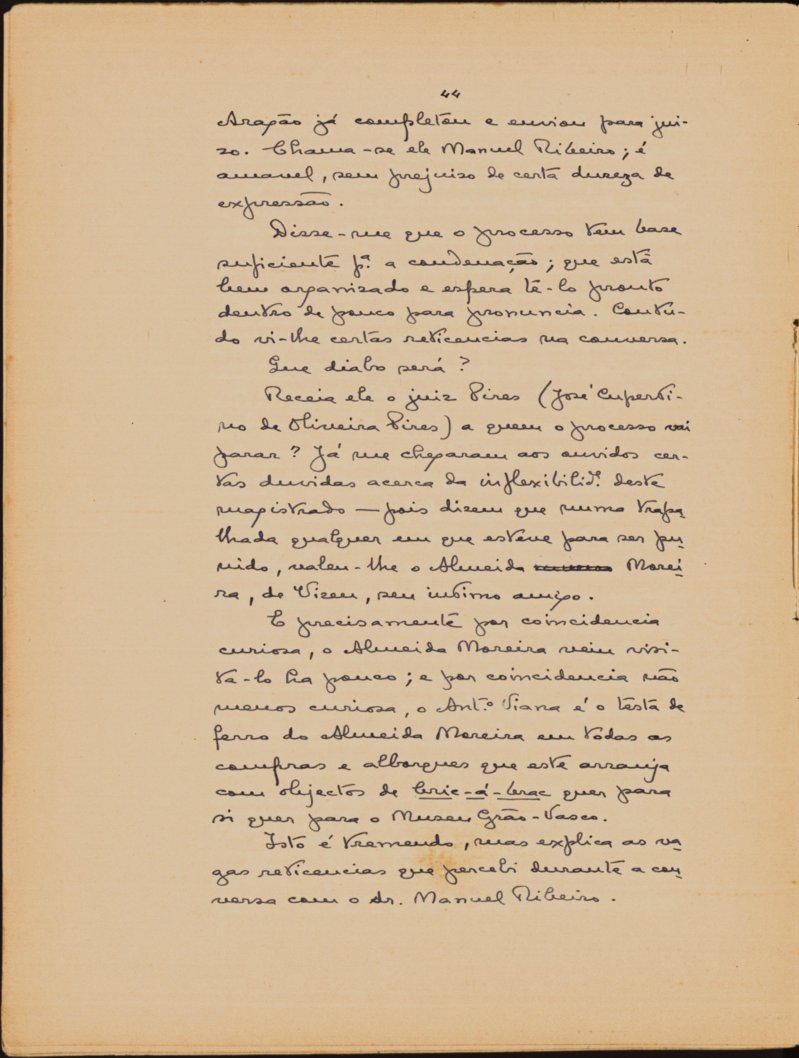 44
Aragão já completou e enviou para jui-
so. Chama-se ele Manuel Ribeiro; é
amavel, sem prejuiso de certa dureza de
expressão.
Disse-me que o processo tem base
suficiente pª. a condenação; que está
bem organisado e espera tê-lo pronto
dentro de pouco para pronuncia. Contu-
do vi-lhe certas reticencias na conversa.
Que diabo será?
Receia ele o juiz Pires (José Cuperti-
no de Oliveira Pires) a quem o processo vai
parar? Já me chegaram aos ouvidos cer-
tas duvidas acerca da inflexibilidᵉ. deste
magistrado — pois dizem que numa trapa-
lhada qualquer em que esteve para ser pu-
nido, valeu-lhe o Almeida Morei-
ra, de Viseu, seu intimo amigo.
E precisamente por coincidencia
curiosa, o Almeida Moreira veiu visi-
ta-lo ha pouco; e por coincidencia não
menos curiosa, o Antº. Viana é o testa de
ferro do Almeida Moreira em todas as
compras e alborques que este arranja
com objectos de bric-á-brac quer para
si quer para o Museu Grão-Vasco.
Isto é tremendo, mas explica as va-
gas reticencias que percebi durante a con-
versa com o dr. Manuel Ribeiro.